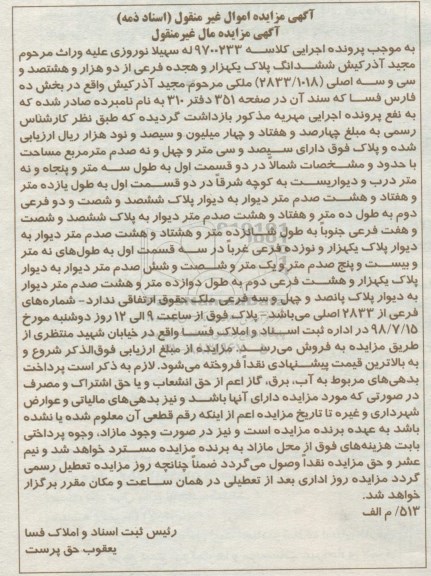 آگهی مزایده اموال غیر منقول (اسناد ذمه)
آگهی مزایده مال غیرمنقول
به موجب پرونده اجرایی کلاسه ۹۷۰۰۲۳۳ له سهیلا نوروزی علیه وراث مرحوم
مجید آذرکیش ششدانگ پلاک یکهزار و هجده فرعی از دو هزار و هشتصد و
سی و سه اصلی (۲۸۳۳/۱۰۱۸) ملکی مرحوم مجید آذرکیش واقع در بخش ده
فارس فسا که سند آن در صفحه ۳۵۱ دفتر ۳۱۰ به نام نامبرده صادر شده که
به نفع پرونده اجرایی مهریه مذکور بازداشت گردیده که طبق نظر کارشناس
رسمی به مبلغ چهارصد و هفتاد و چهار میلیون و سیصد و نود هزار ریال ارزیابی
شده و پلاک فوق دارای سیصد و سی متر و چهل و نه صدم مترمربع مساحت
با حدود و مشخصات شمالاً در دو قسمت اول به طول سه متر و پنجاه و نه
متر درب و دیواریست به کوچه شرقاً در دو قسمت اول به طول یازده متر
و هفتاد و هشت صدم متر دیوار به دیوار پلاک ششصد و شصت و دو فرعی
دوم به طول ده متر و هفتاد و هشت صدم متر دیوار به پلاک ششصد و شصت
و هفت فرعی جنوباً به طول شانزده متر و هشتاد و هشت صدم متر دیوار به
دیوار پلاک یکهزار و نوزده فرعی غرباً در سه قسمت اول به طول‌های نه متر
و بیست و پنج صدم متر و یک متر و شصت و شش صدم متر دیوار به دیوار
پلاک یکهزار و هشت فرعی دوم به طول دوازده متر و هشت صدم متر دیوار
به دیوار پلاک پانصد و چهل و سه فرعی ملک حقوق ارتفاقی ندارد- شماره‌های
فرعی از ۲۸۳۳ اصلی می‌باشد- پلاک فوق از ساعت ۹ الی ۱۲ روز دوشنبه مورخ
۹۸/۷/۱۵ در اداره ثبت اسناد و املاک فسا واقع در خیابان شهید منتظری از
طریق مزایده به فروش می‌رسد. مزایده از مبلغ ارزیابی فوق‌الذکر شروع و
به بالاترین قیمت پیشنهادی نقداً فروخته می‌شود. لازم به ذکر است پرداخت
بدهی‌های مربوط به آب، برق، گاز اعم از حق انشعاب و یا حق اشتراک و مصرف
در صورتی که مورد مزایده دارای آنها باشد و نیز بدهی‌های مالیاتی و عوارض
شهرداری و غیره تا تاریخ مزایده اعم از اینکه رقم قطعی آن معلوم شده یا نشده
باشد به عهده برنده مزایده است و نیز در صورت وجود مازاد، وجوه پرداختی
بابت هزینه‌های فوق از محل مازاد به برنده مزایده مسترد خواهد شد و نیم
عشر و حق مزایده نقداً وصول می‌گردد ضمناً چنانچه روز مزایده تعطیل رسمی
گردد مزایده روز اداری بعد از تعطیلی در همان ساعت و مکان مقرر برگزار
خواهد شد.
۵۱۳/ م الف
رئیس ثبت اسناد و املاک فسا
یعقوب حق پرست